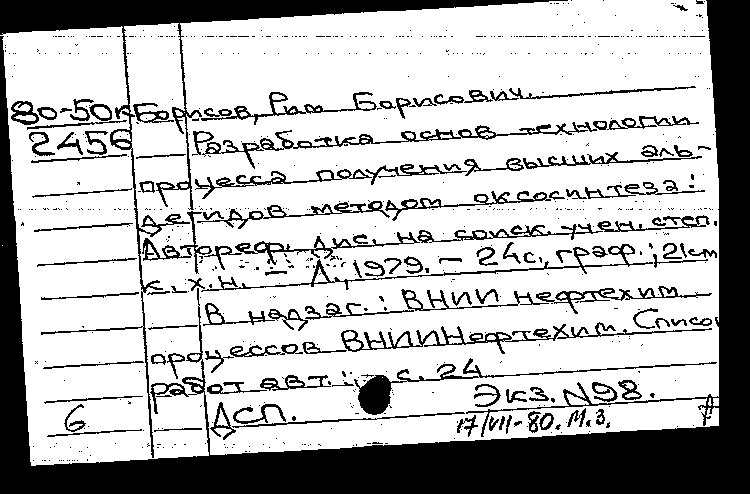 80-50к Борисов, Рим Борисович.
2456 Разработка основ технологии
процесса получения высших аль-
дегидов методом оксосинтеза:
Автореф. дис. на соиск. учен. степ.
к. х. н. - Л., 1979. - 24с., граф.; 21см
В надзаг.: ВНИИ нефтехим
процессов ВНИИНефтехим. Список
работ авт.: с. 24
6 ДСП. Экз. N98.
17/VII-80. М.З.